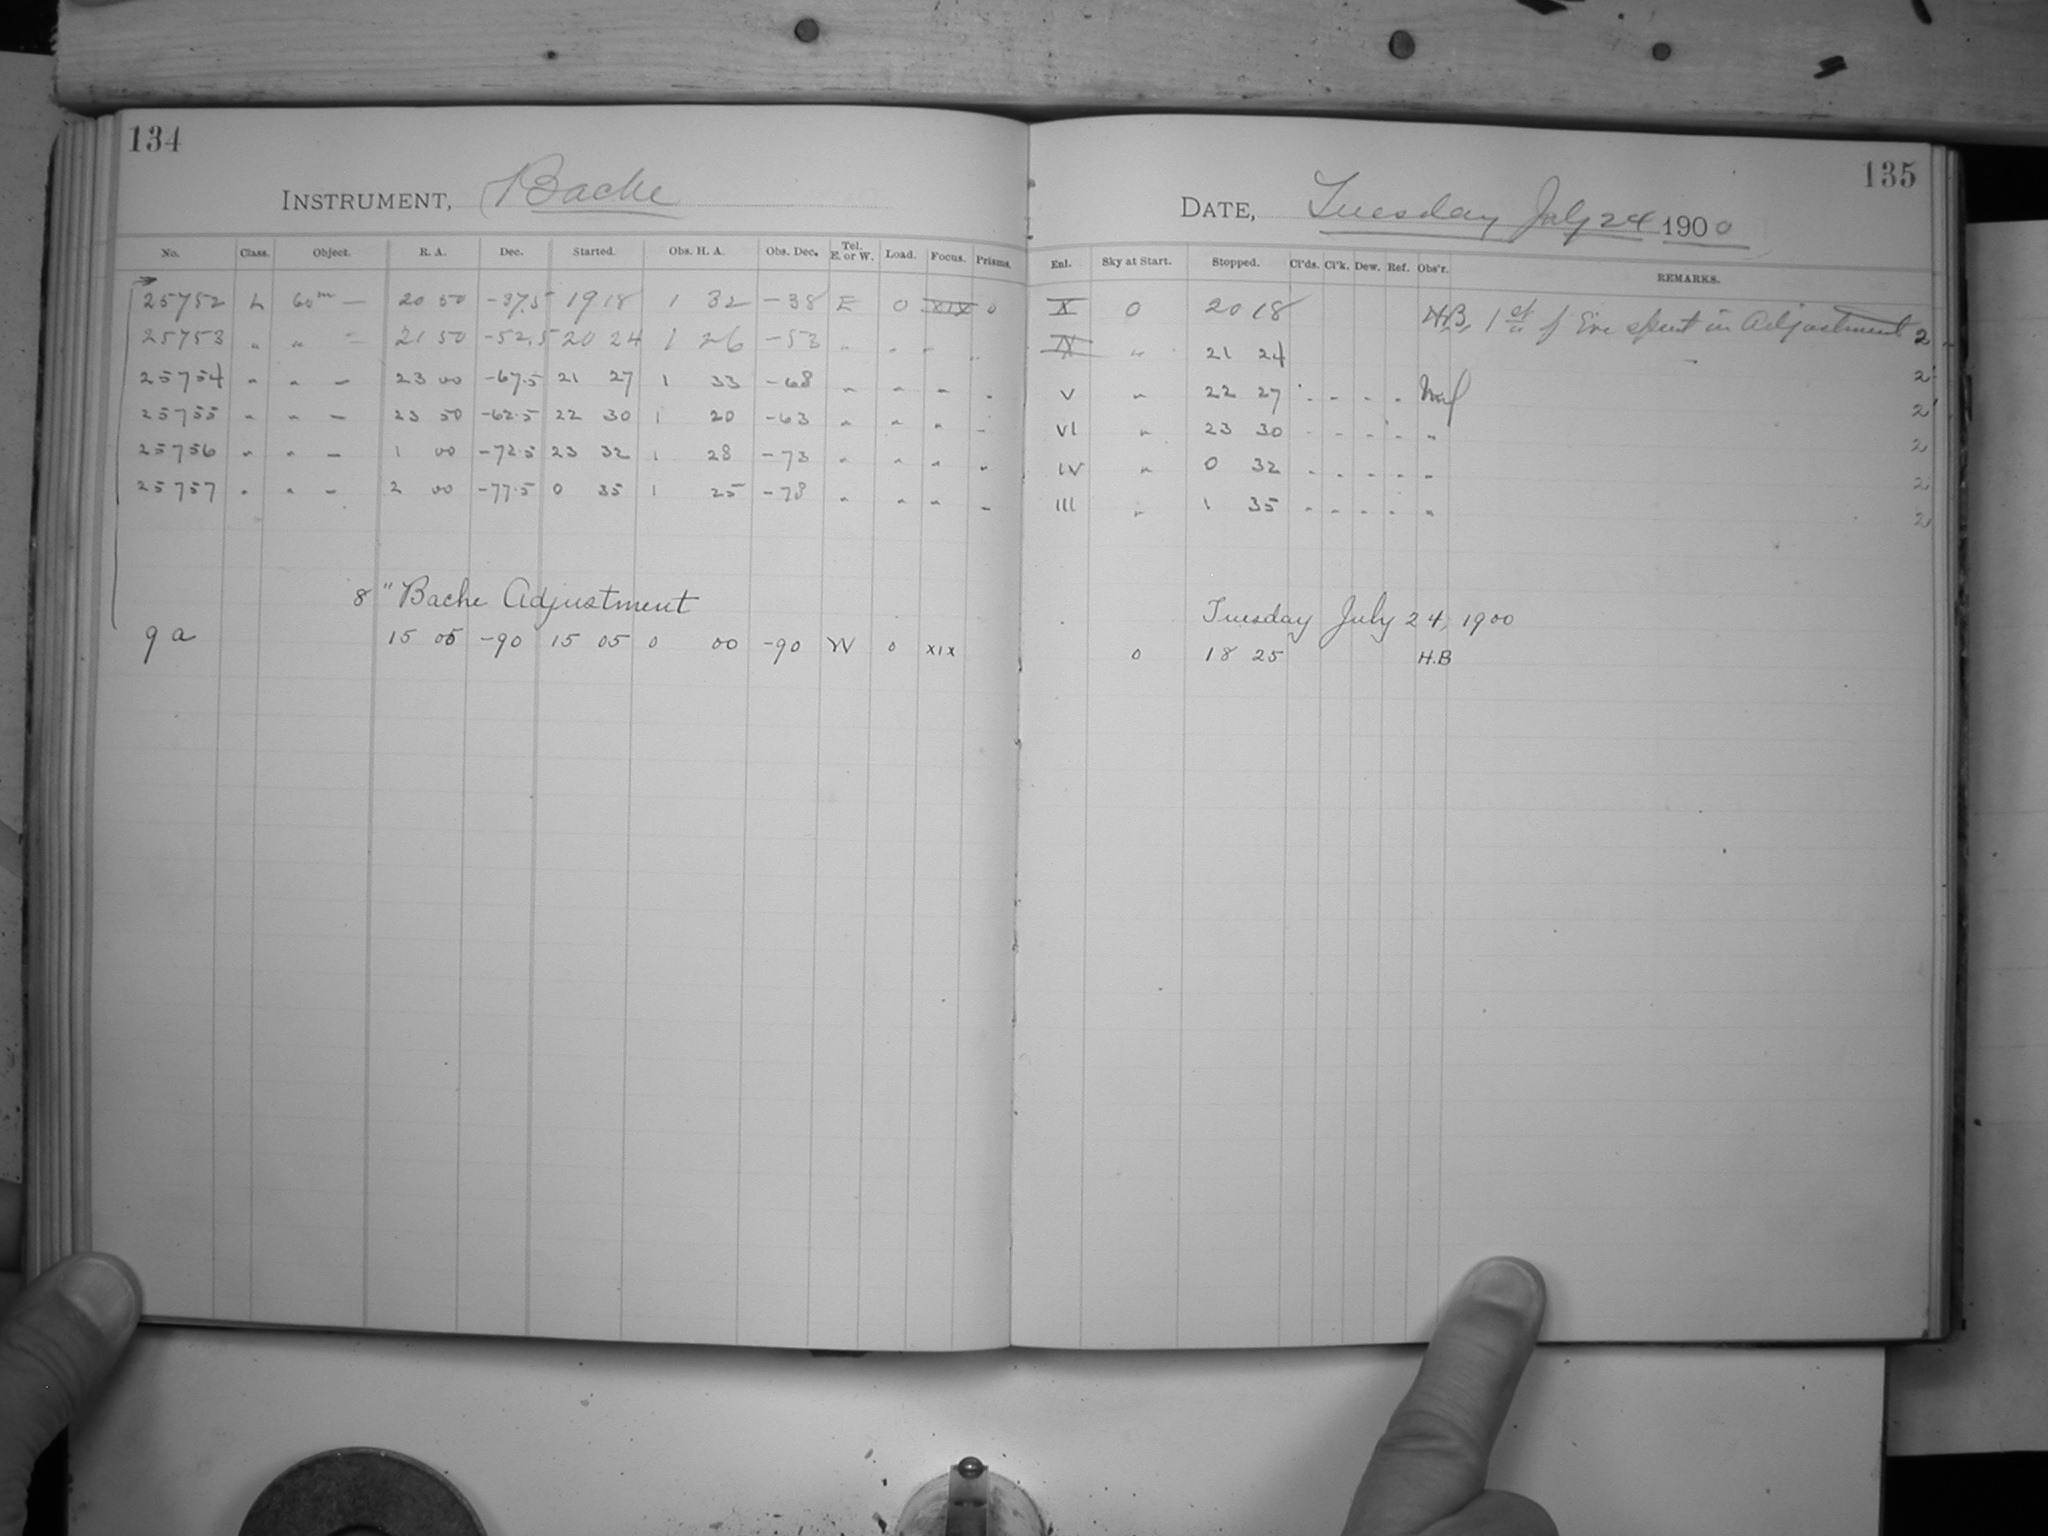 134
INSTRUMENT, Bache
No. Class. Object. R. A. Dec. Started. Obs. H. A. Obs. Dec. Tel. E. or W. Load. Focus. Prisms.
25752 L 60m — 20 50 -37.5 19 18 1 32 -38 E 0 XIX 0
25753 " " = 21 50 -52.5 20 24 1 26 -53 " " " "
25754 " " — 23 00 -67.5 21 27 1 33 -68 " " " "
25755 " " — 23 50 -62.5 22 30 1 20 -63 " " " "
25756 " " — 1 00 -72.5 23 32 1 28 -73 " " " "
25757 " " — 2 00 -77.5 0 35 1 25 -78 " " " "
8" Bache Adjustment
9 a 15 05 -90 15 05 0 00 -90 W 0 XIX
135
DATE, Tuesday July 24 1900
Enl. Sky at Start. Stopped. Cl'ds. Cl'k. Dew. Ref. Obs'r. REMARKS.
X 0 20 18 H.B. 1st of Eve spent in Adjustment 2
IX " 21 24 2
V " 22 27 " " " " 2
VI " 23 30 " " " " " 2
IV " 0 32 " " " " " 2
III " 1 35 " " " " " 2
Tuesday July 24, 1900
0 18 25 H.B